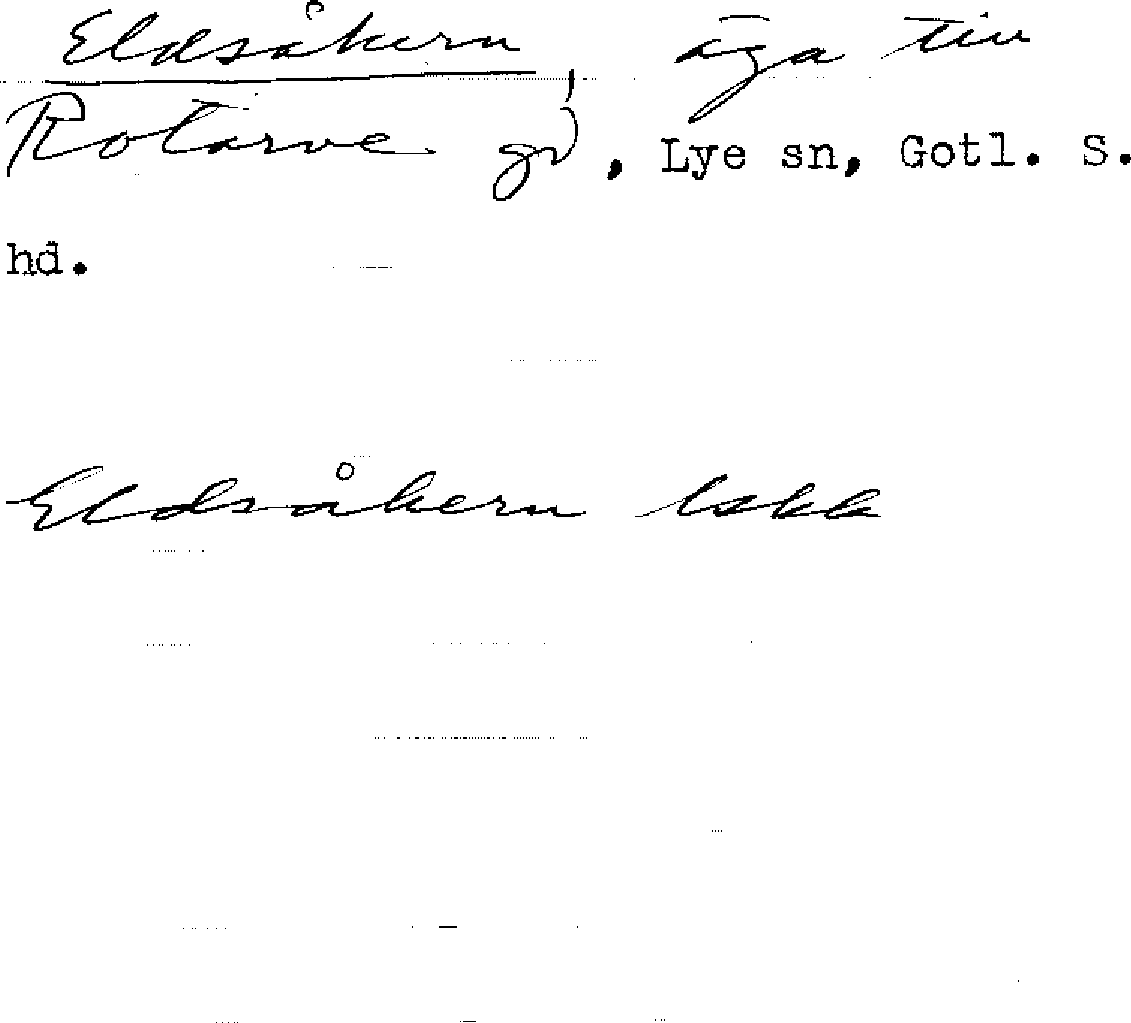 Eldsåkern, äga till
Rotarve gd, Lye sn, Gotl. S.
hd.
Eldsåkern lskk